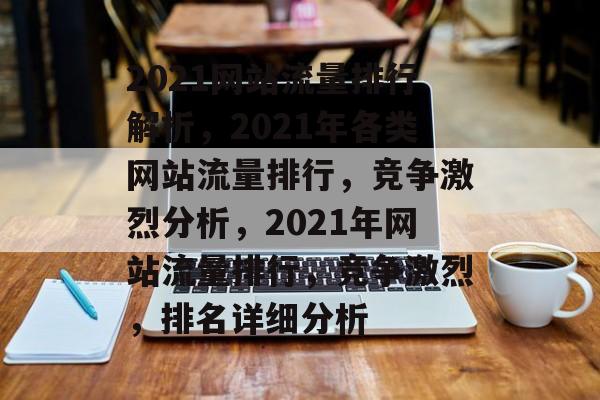 2021网站流量排行
解析，2021年各类
网站流量排行，竞争激
烈分析，2021年网
站流量排行，竞争激烈
，排名详细分析